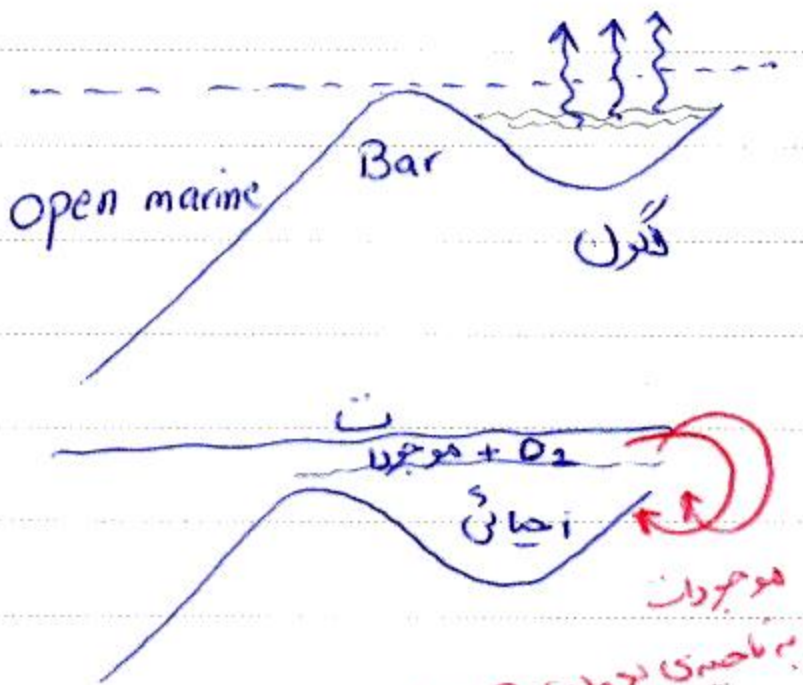 Bar
Open marine
لاگون
موجودات + O2
احیائی
موجودات
به ناحیه‌ی